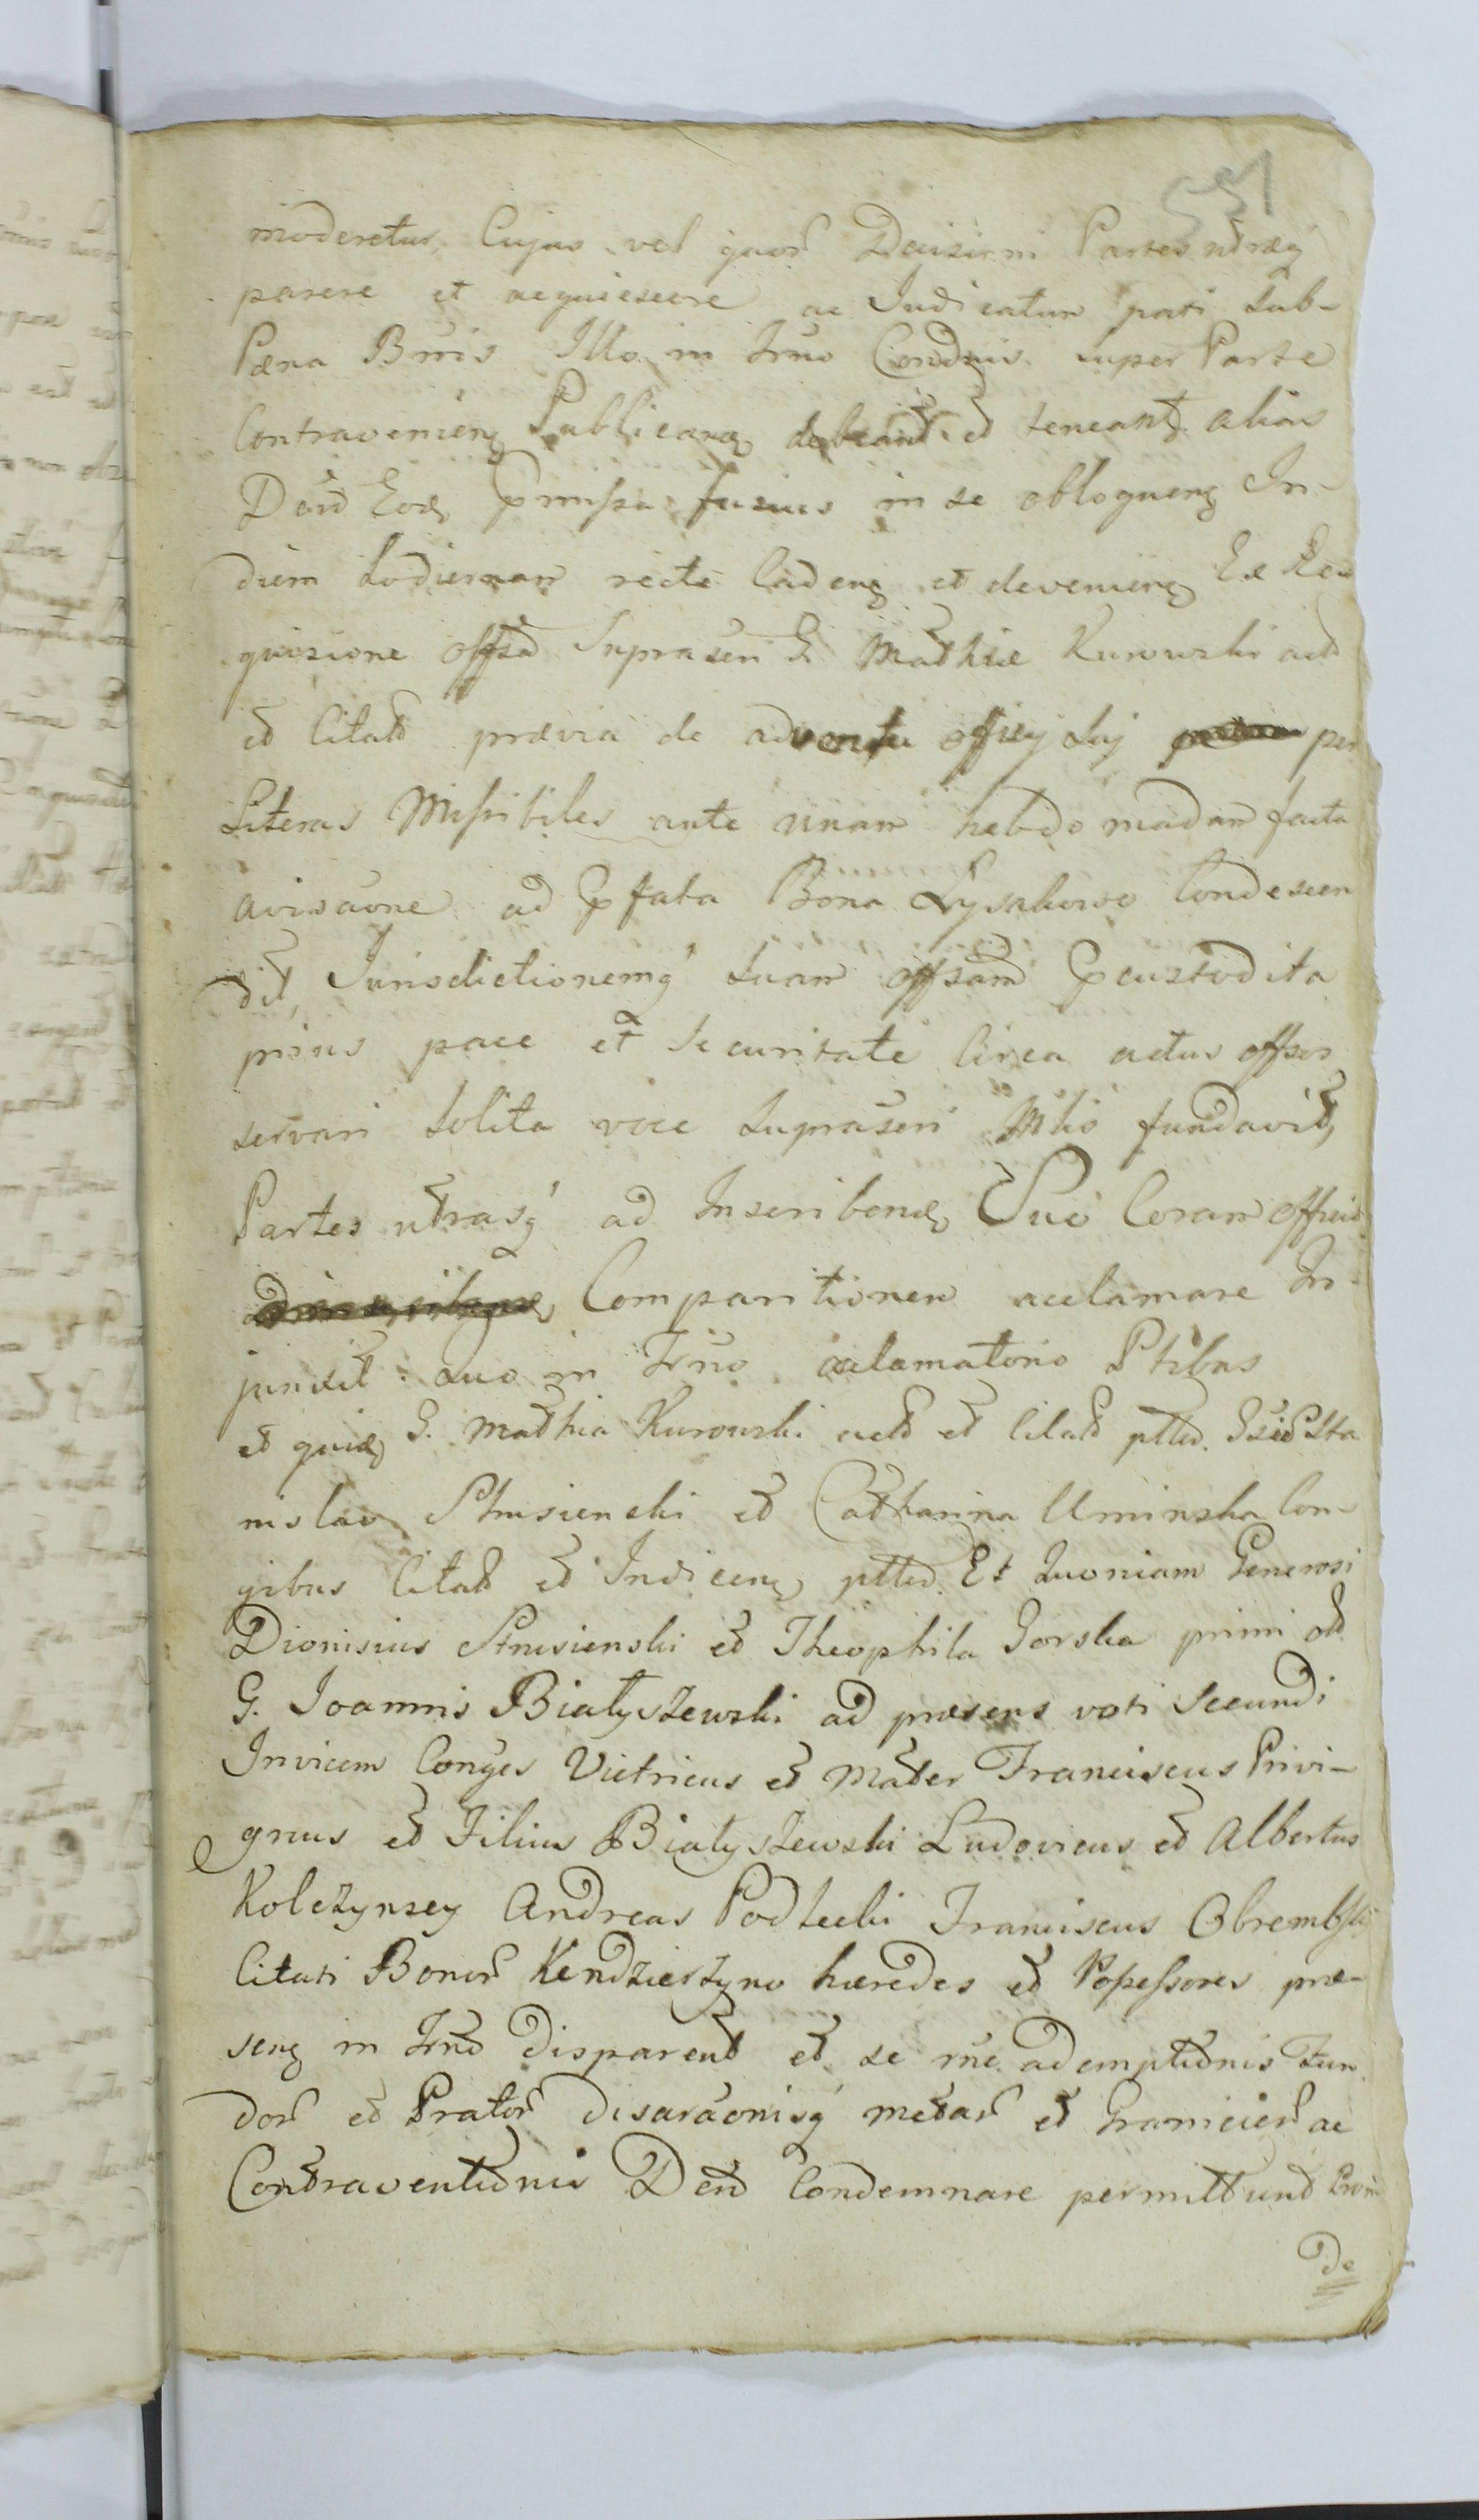 551
moderetur, Cujus vel quor Decisioni Partes utræq
parere et acquiescere ac Judicatum pati sub-
Pæna Bnis Illo in Trno Condnis super Parte
Contravenien Publicanda debeant et teneant alias
Dand Eod præmissa fusius in se obloquen In-
diem hodiernam recte Caden et devenien Ex Re
quisitione offsa Suprascri G. Mathiæ Kurowski act
et Citat prævia de adventu officij sui per
Literas Missibiles ante unam hebdomadam facta
avisaone ad præfata Bona Lysakowo Condescen
dit, Jurisdictionemq suam offsam præcustodita
prius pace et securitate Circa actus offsos
servari solita voce suprascri Mlis fundavit,
Partes utrasq ad Inscribend Suo Coram officio
Comparitionem acclamare In-
junxit: quo in Trno acclamatorio Ptibus
et quid G. Mathia Kurowski act et Citat ptbd. Gsis Sta
nislao Strusienski et Catharina Uminska Con-
gibus Citat et Indicen ptbd. Et Quoniam Generosi
Dionisius Strusienski et Theophila Gorska primi ol
G. Joannis Białyszewski ad præsens voti Secundi
Invicem Conges Victricus et Mater Franciscus Privi-
gnus et Filius Białyszewski Ludovicus et Albertus
Kolczynscy Andreas Podlecki Franciscus Obrembski
Citati Bonor Kendzierzyno hæredes et Possessores præ-
sen in Trno Disparent et se rne ademptionis Fun
dor et Prator Disaraonisq metar et Granicier ac
Contraventionis Dend Condemnare permittunt Proin
De